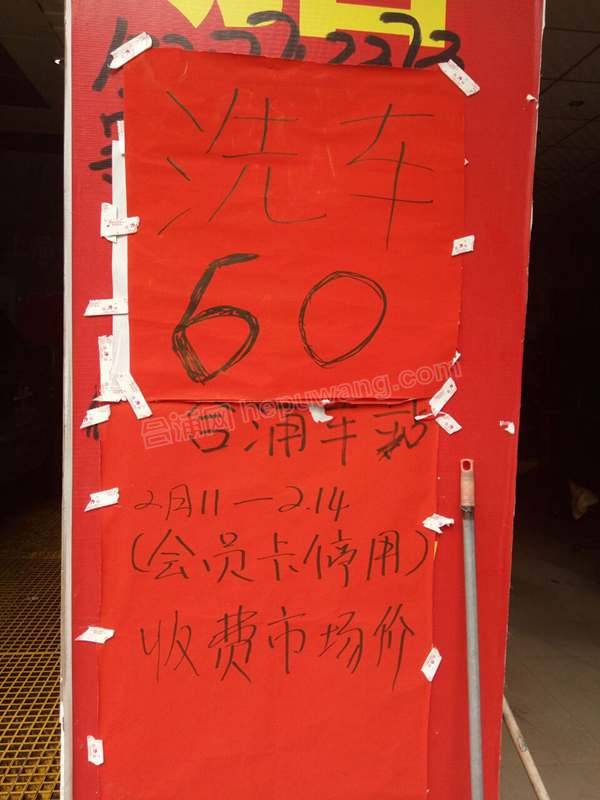 洗车
60
合浦网 hepuwang.com
合浦车站
2月11—2.14
(会员卡停用)
收费市场价